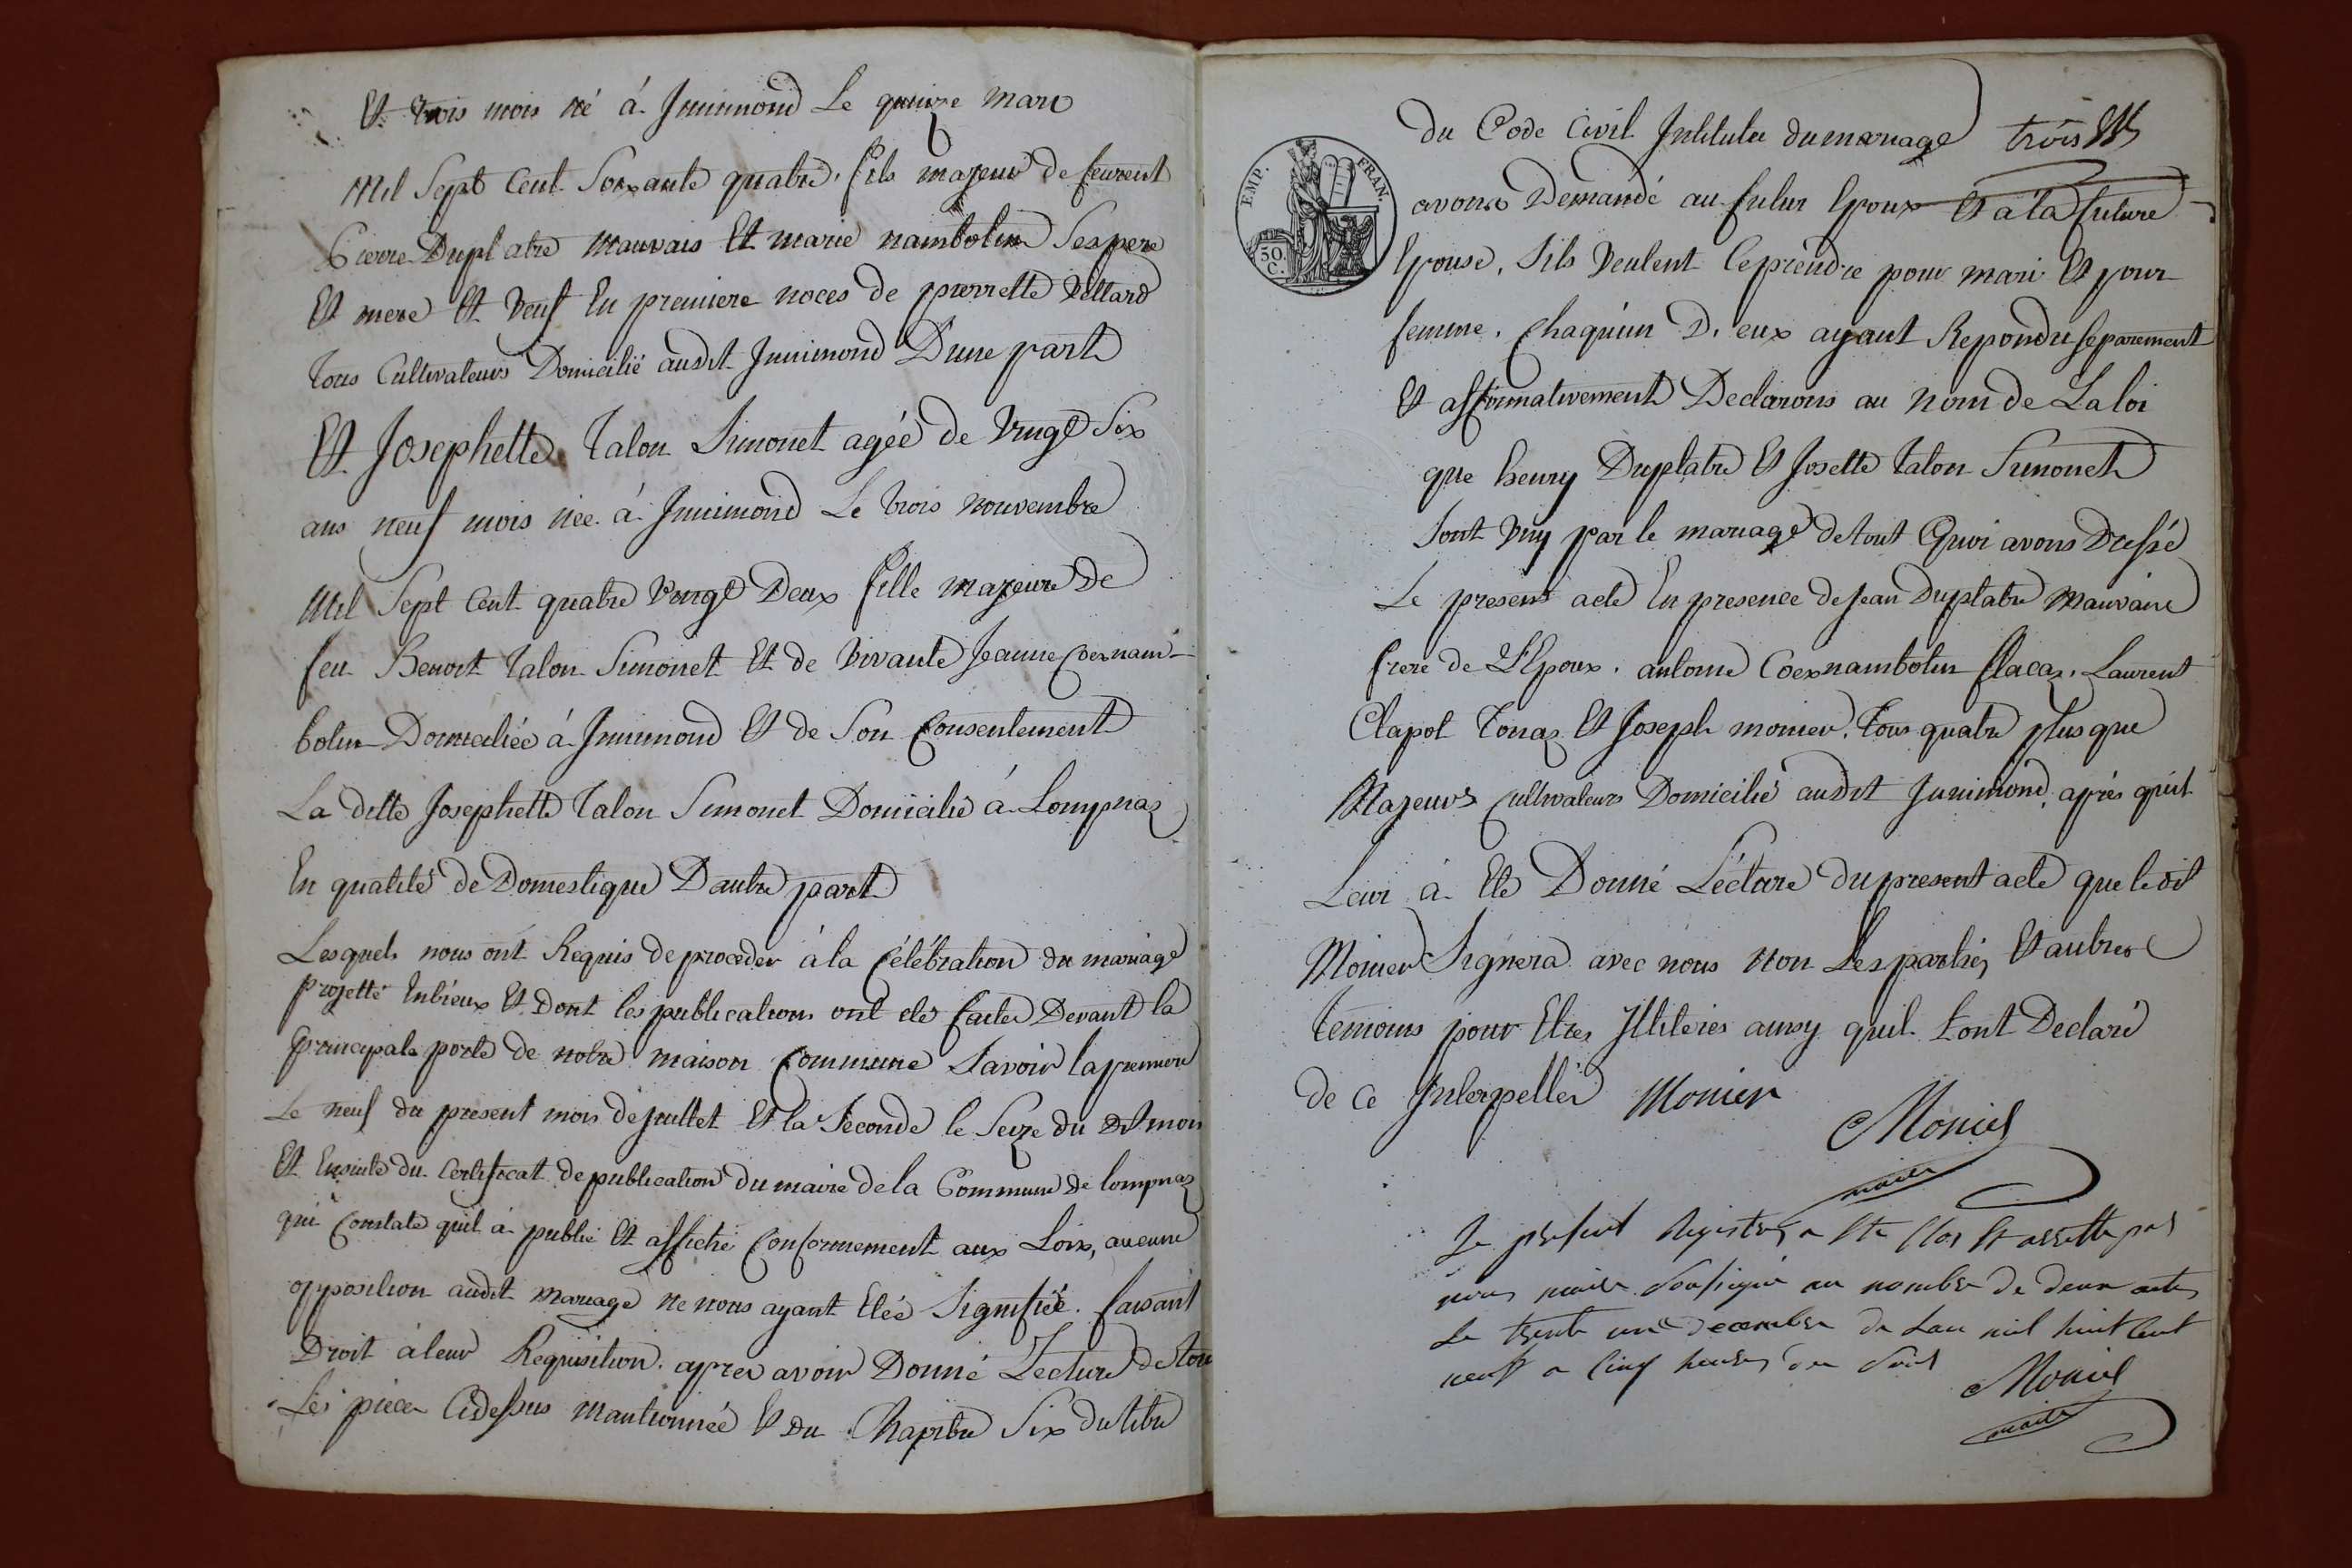 Et trois mois né á Innimond Le quinze mars
Mil Sept Cent Soixante quatre, fils majeur de feurent
Pierre Duplatre Mauvais Et marie nambotin Ses pere
Et mere Et Veuf En premiere noces de pierrette Vellard
Tous Cultivateurs Domicilié audit Innimond D'une part
Et Josephette Talon Simonet agéé de Vingt Six
ans neuf mois née á Innimond Le trois nouvembre
Mil Sept Cent quatre Vingt Deux fille majeure De
feu Benoit Talon Simonet Et de Vivante Jeanne Coexnam-
botin Domiciliée á Innimond Et de Son Consentement
La ditte Josephette Talon Simonet Domicilié á Lompnaz
En qualité de Domestique D'autre part
Lesquels nous ont Requis de proceder á la Célébration du mariage
projetté Entreux Et Dont les publications ont été faites Devant la
principale porte de notre maison Commune Savoir la premiere
Le neuf du present mois de juillet Et la Seconde le Seize du dit mois
Et Ensuite du Certificat de publication du maire de la Commune de lompnaz
qui Constate quil á publié Et affiché Conformement aux Loix, aucune
opposition audit mariage ne nous ayant Etéé Signifiéé. faisant
Droit á leur Requisition. apres avoir Donné Lecture de tou
Les pieces Cidessus mantionnéé Et Du Chapitre Six du titre
du Code Civil Intitulée du mariage trois
avons Demandé au futur Epoux Et á la future
Epouse, Sils Veulent Ce prendre pour mari Et pour
femme. Chaquun D'eux ayant Repondu separement
Et affirmativement Declarons au Nom de La loi
que henry Duplatre Et Josette Talon Simonet
Sont Uny par le mariage de tout Quoi avons Dressé
Le present acte En presence de Jean Duplatre Mauvais
frere de L'Epoux. antoine Coexnambotin flacaz. Laurent
Clapot Tonaz Et Joseph monier. Tous quatre plus que
Majeurs Cultivateurs Domicilié audit Innimond, aprés quil
Leur á Eté Donné Léctore du present acte que ledit
Monier Signera avec nous Non Les parties Et autres
temoins pour Etres Illiteres ainsy quil Lont Declaré
de Ce Interpellés Monier
Monier
maire
Le present Registre a Eté Clos Et arretté par
nous maire Soussigné au nombre de deux actes
Le trente un decembre de Lan mil huit Cent
neuf a Cinq heures du Soir
Monier
maire
EMP. FRAN.
50.
C.